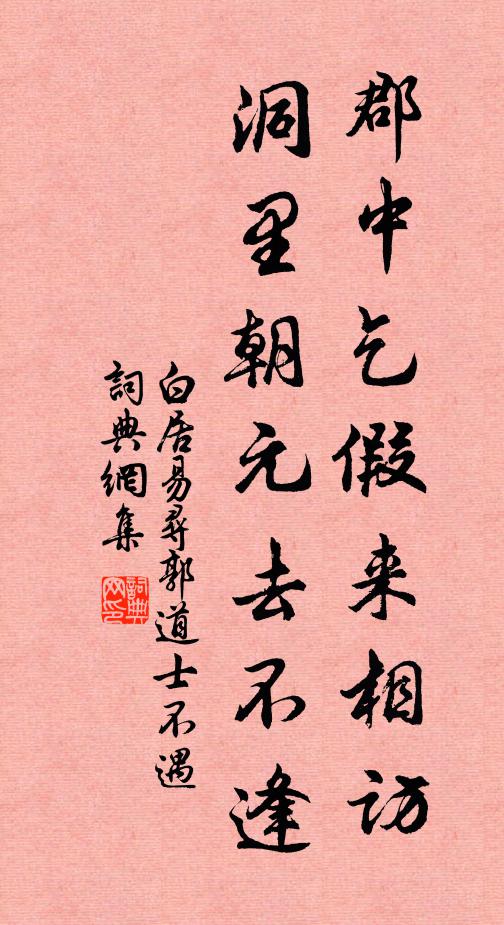 郡中乞假来相訪
洞里朝元去不逢
白居易尋郭道士不遇
詞典網集
詞典网印